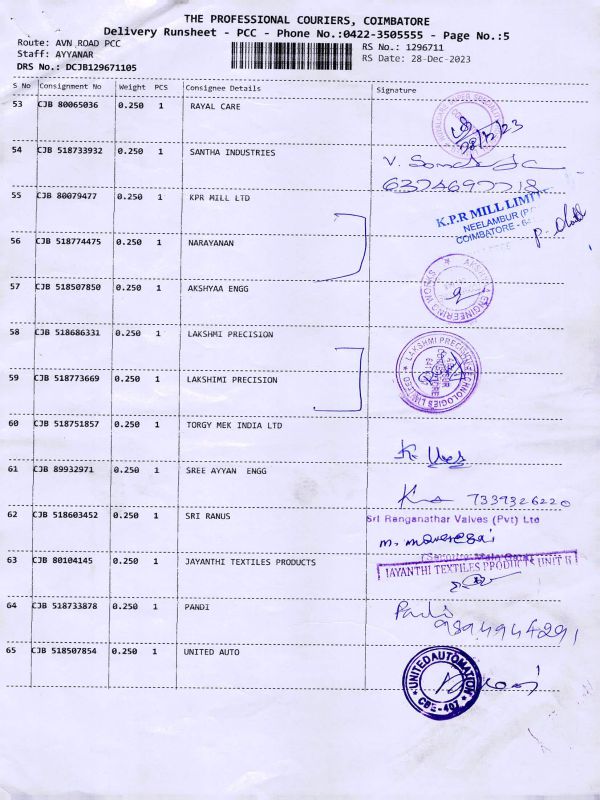 THE PROFESSIONAL COURIERS, COIMBATORE
Delivery Runsheet - PCC - Phone No.:0422-3505555 - Page No.:5
Route: AVN ROAD PCC
RS No.: 1296711
Staff: AYYANAR
RS Date: 28-Dec-2023
DRS No.: DCJB129671105
S No Consignment No Weight PCS Consignee Details Signature
53 CJB 80065036 0.250 1 RAYAL CARE
28/12/23
54 CJB 518733932 0.250 1 SANTHA INDUSTRIES
6374697718
55 CJB 80079477 0.250 1 KPR MILL LTD
K.P.R MILL LIMITED
NEELAMBUR
COIMBATORE
56 CJB 518774475 0.250 1 NARAYANAN
57 CJB 518507850 0.250 1 AKSHYAA ENGG
ENGINEERING WORKS
58 CJB 518686331 0.250 1 LAKSHMI PRECISION
LAKSHMI PRECISION TECHNOLOGIES LIMITED
59 CJB 518773669 0.250 1 LAKSHIMI PRECISION
60 CJB 518751857 0.250 1 TORGY MEK INDIA LTD
61 CJB 89932971 0.250 1 SREE AYYAN ENGG
7339326220
62 CJB 518603452 0.250 1 SRI RANUS
Sri Ranganathar Valves (Pvt) Ltd
63 CJB 80104145 0.250 1 JAYANTHI TEXTILES PRODUCTS
JAYANTHI TEXTILES PRODUCTS UNIT II
64 CJB 518733878 0.250 1 PANDI
Pandi
9894944291
65 CJB 518507854 0.250 1 UNITED AUTO
UNITED AUTOMATION
CBE-407